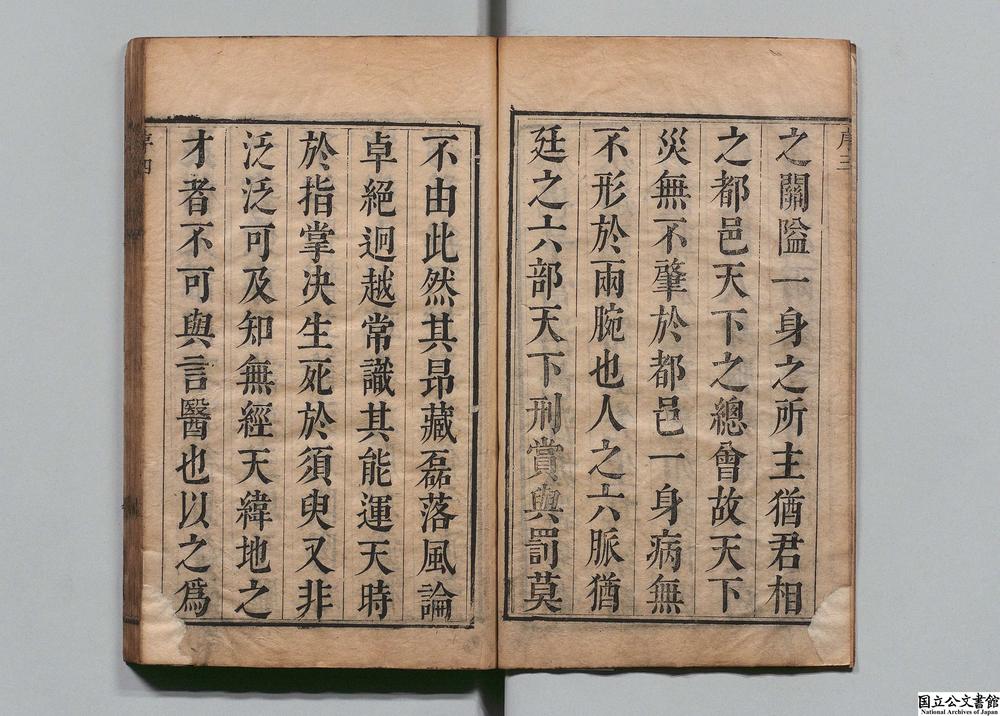 序三
之關隘一身之所主猶君相
之都邑天下之總會故天下
災無不肇於都邑一身病無
不形於兩腕也人之六脈猶
廷之六部天下刑賞與罰莫
不由此然其昻藏磊落風論
卓絕迥越常識其能運天時
於指掌决生死於須臾又非
泛泛可及知無經天緯地之
才者不可與言醫也以之爲
序四
国立公文書館
National Archives of Japan